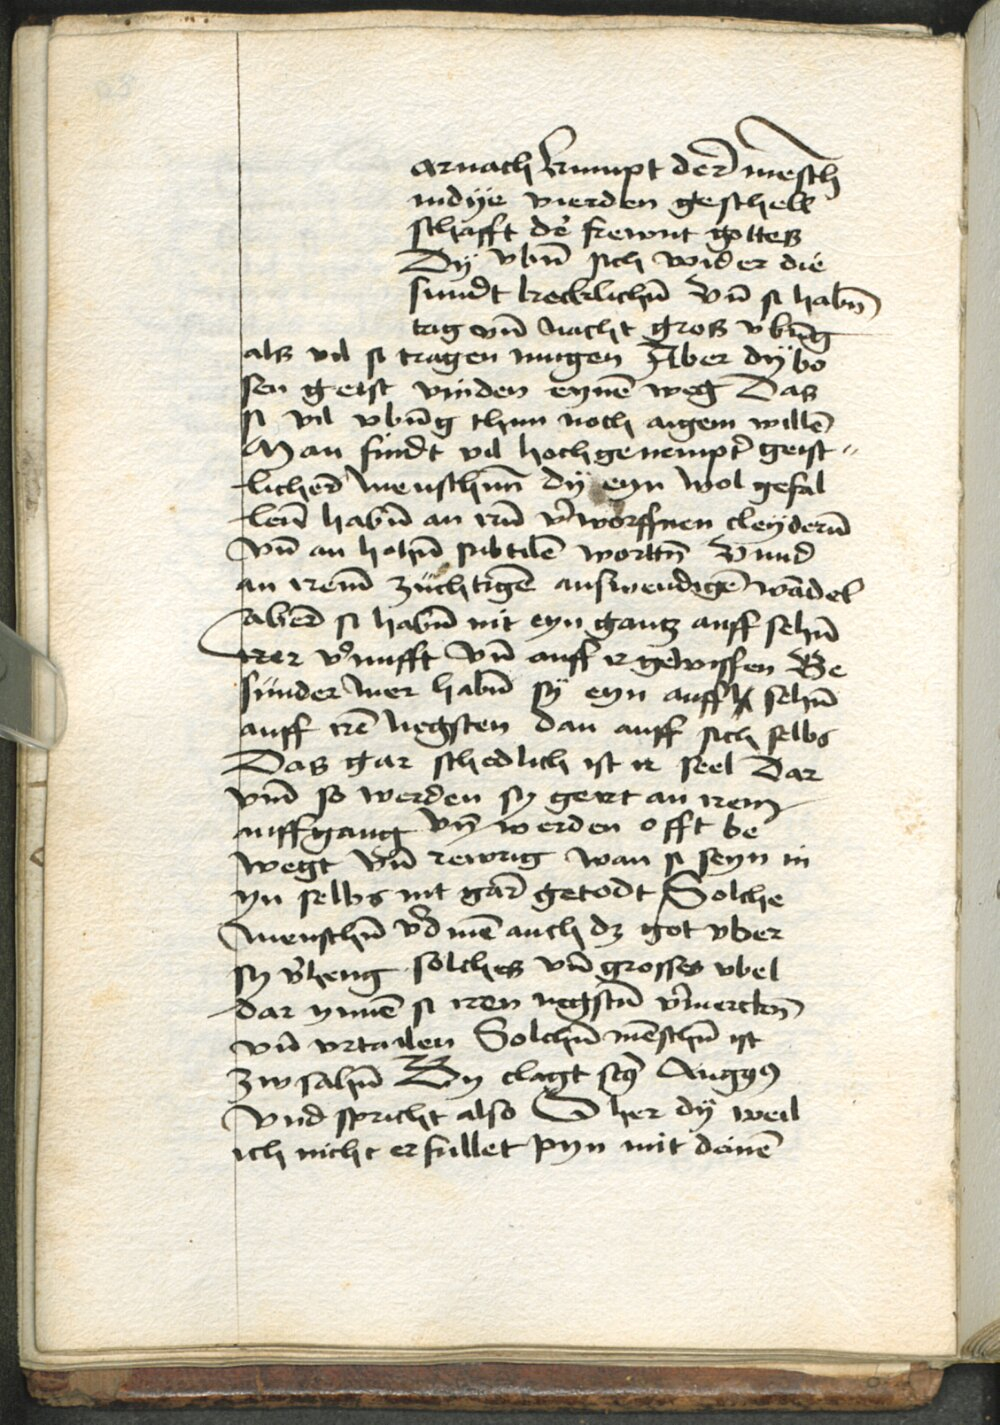 arnach kumpt der mesch
indÿe vierden geschell
schafft de frewnt gottes
Dÿ vbn̄ sich wider die
sundt kecklichn̄ vn̄ si habn̄
tag vn̄ nacht gross vbūg
als vil si tragen mugen Aber dÿ bo
sen geist vinden eynē weg Das
si vil vbūg thun noch aigem willē
Man findt vil hochgenempt geist〃
licher menschnn̄ dÿ eyn wol gefal
len̄ habn̄ an irn̄ v̓worffnen cleÿdern̄
vn̄ an hohn̄ subtilē wortn̄ Vnnd
an irem̄ züchtigē auswendigē wādel
aber si habn̄ nit eyn gantz auff sehn̄
irer v̓nufft vn̄ auff ir gewissen Be
sunder mer habn̄ sÿ eyn auff sehn̄
auff irē negsten dan auff sich selbs
Das gar schedlich ist ir seel Dar
vm̄ so werden sy geirt an irem
auffgang vn̄ werden offt be
wegt vn̄ rewrig wan si seyn in
yn selbs nit gar getodt Solche
menschn̄ v̓dinē auch dz got vber
sy v̓heng solches vn̄ grosses vbel
dar ynnē si iren negstn̄ v̓merckn̄
vn̄ vrtailen Solchn̄ mēschn̄ ist
zw sahn̄ Dy clagt sc̄s Augg9
vnd spricht also O her dÿ weil
ich nicht erfullet pyn mit deinē